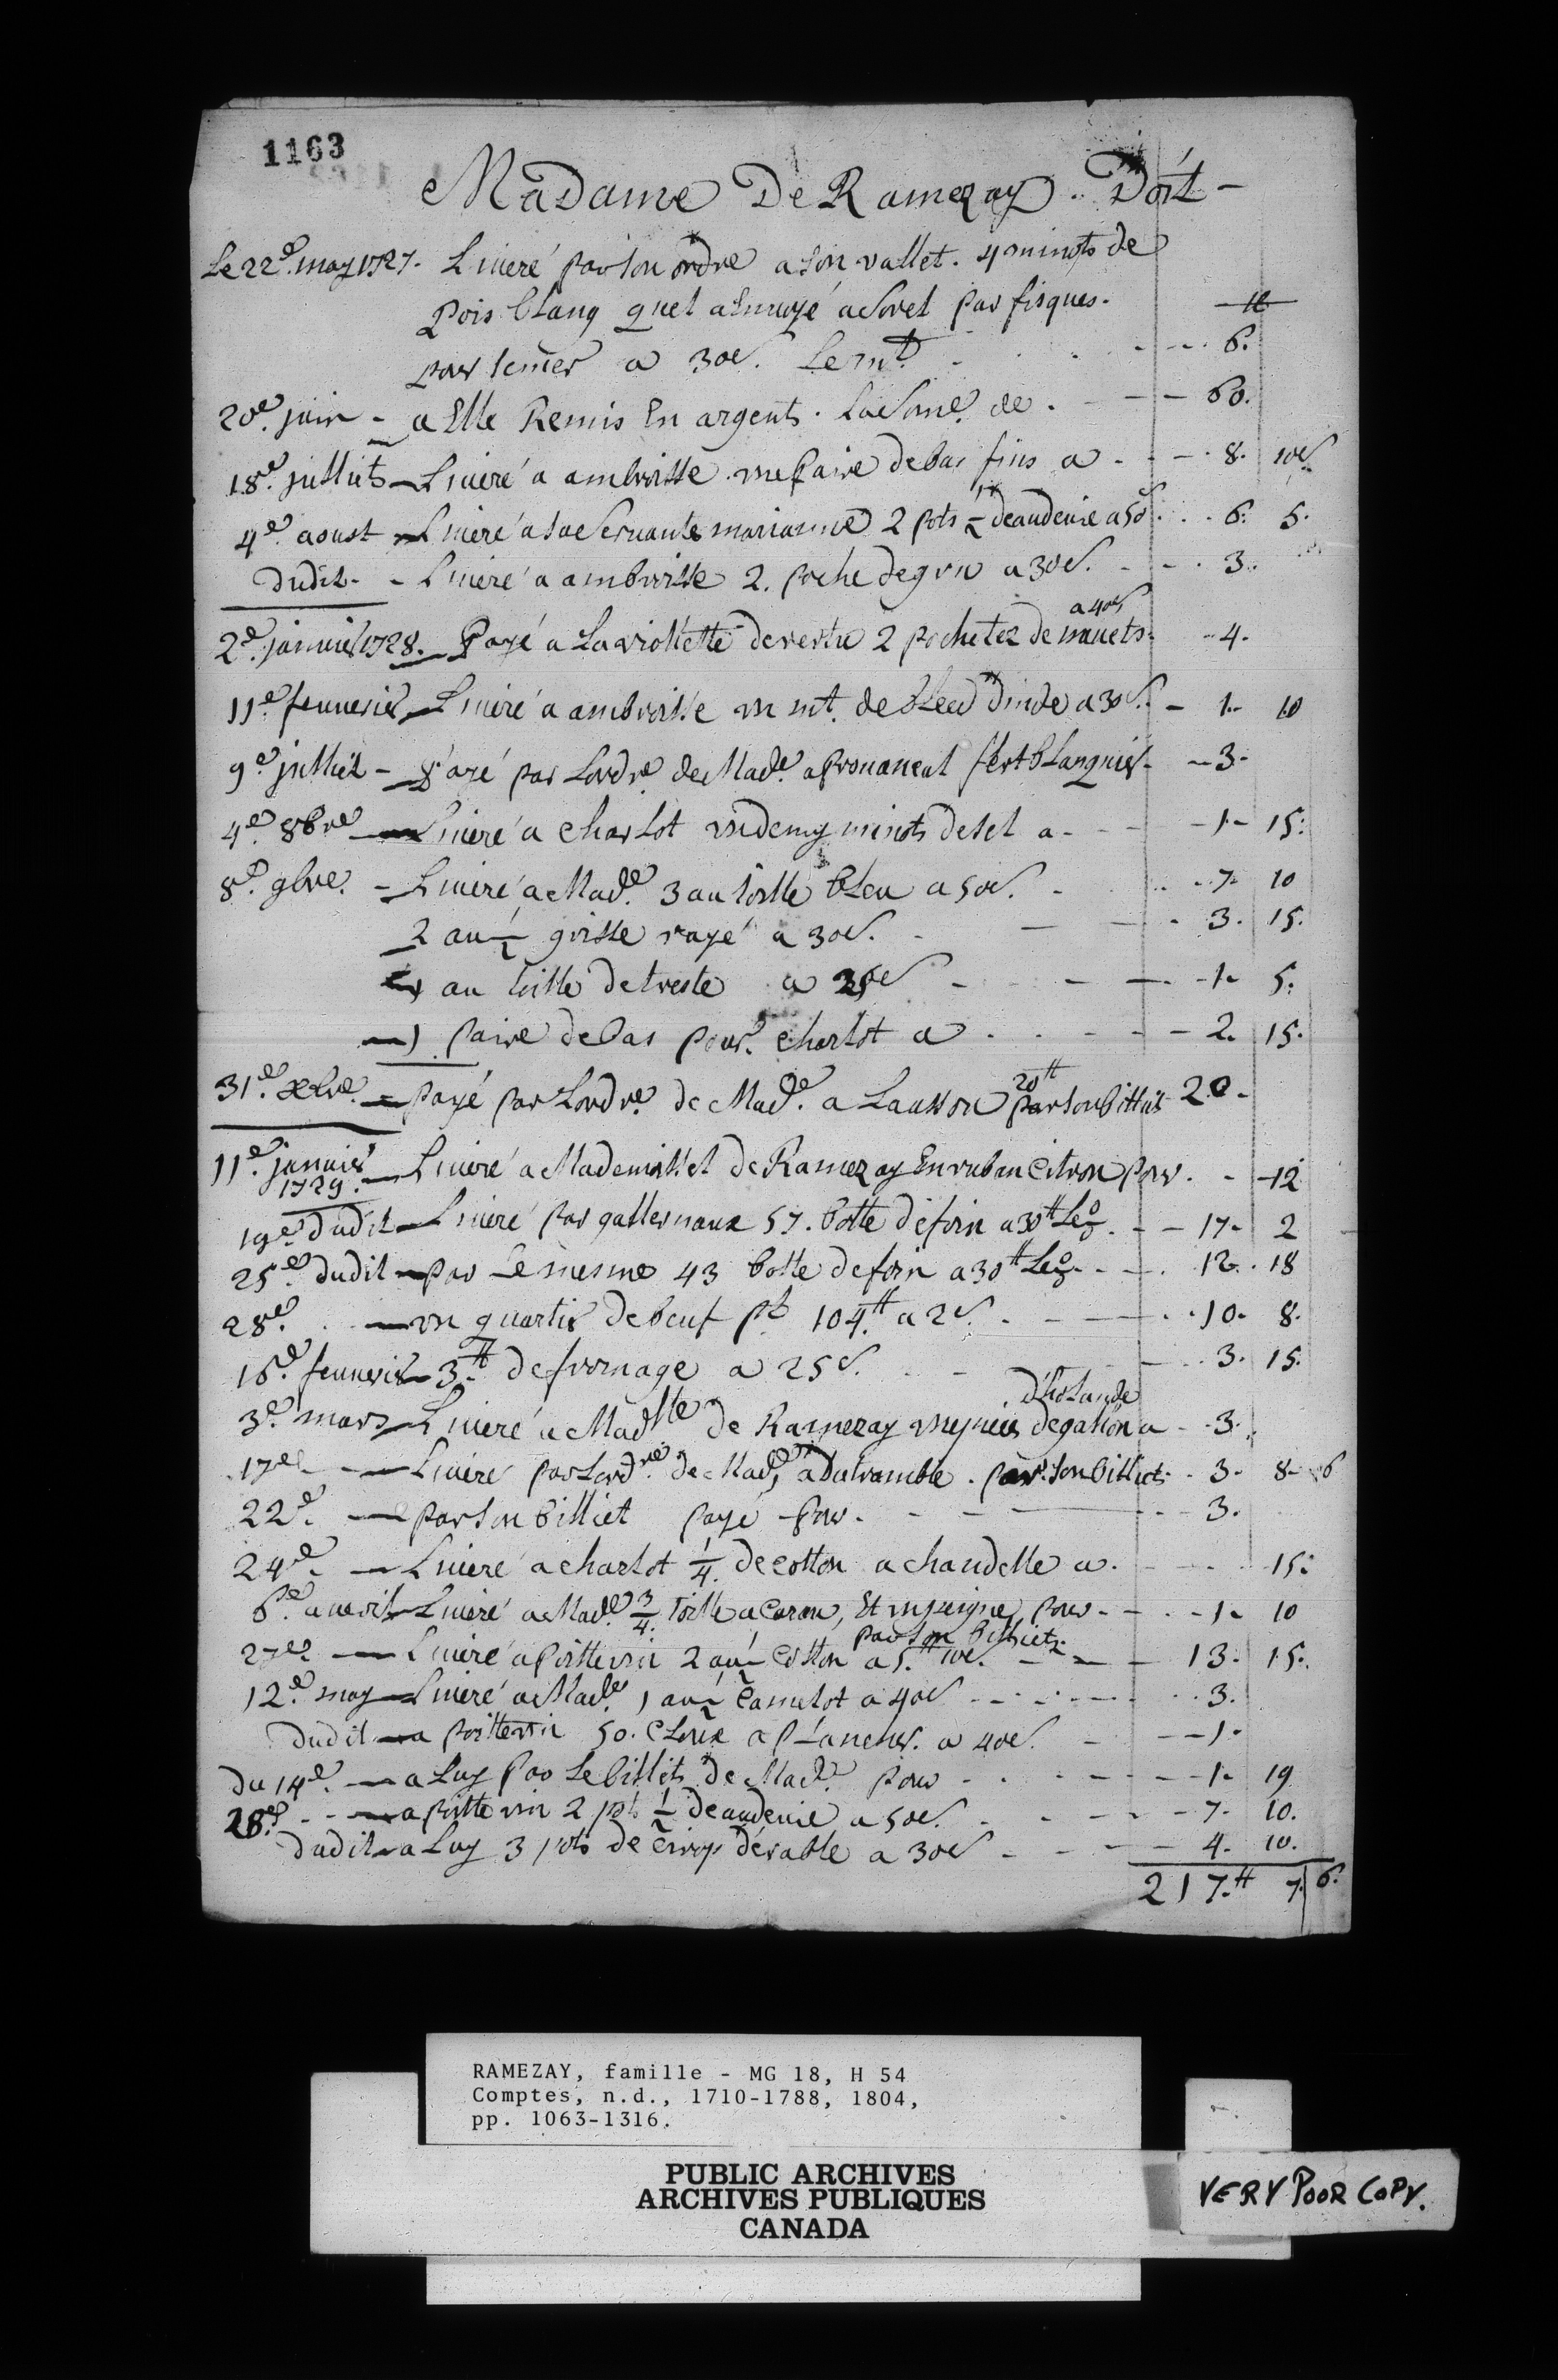 1163
Madame De Ramezay Doit
Le 22e. may 1727. Liuere par son ordre a son vallet. 4 minots de
pois blanq quel a Enuoyé a Sorel par fisques. tt
pour semer a 30s. Le mt. 6.
20e. juin - a Elle Remis En argents. La Some. de 60.
18e. julliets Liueré a ambroisse vne paire de bas fins a 8. 10s
4e. aoust Liueré a sae Seruante marianne 2 pots 1/2 deaudeuie a 50s 6. 5.
Dudit. Liueré a ambroisse 2. poche de gru a 30s. 3.
a 40s
2e. januier 1728. Payé a La viollette de vertu 2 pochetez de nauets. 4.
11e. feuuerier Liueré a ambroisse vn mt. de bled dinde a 30s. 1. 10
9e. julliet - Payé par Lordre. de Made. a prouaneal fert blanquier 3.
4e. 8bre Liueré a Charlot vn demy minots de sel a 1. 15.
8e. 9bre. - Liueré a Made. 3 au toille bleu a 50s. 7. 10
2 au 1/2 grisse rayé a 30s. 3. 15.
1 au toille de treste a 25s 1. 5.
1 paire de bas pour. Charlot a 2. 15.
20tt
31e. xbre. - payé par Lordre. de Made. a Lausson par son billiet 20.
11e. januier Liueré a Mademoisel de Ramezay En ruban Citron pour. 12
1729.
19e. dudit Liueré par gallernaux 57. botte de foin a 30tt Le % 17. 2
25e. dudit par Le mesme 43 botte de foin a 30tt Le % 12. 18
28e. vn quartier de beuf pt 104.tt a 2s. 10. 8.
16e. feuuerier 3.tt de fromage a 25s. 3. 15.
d'holande
3e. mars Liueré a Madlle de Ramezay vne pieces de gallon a 3.
17e. Liueré par Lordre. de Made, a Dutramble. par. son billiet. 3. 8. 6
22e. par son billiet payé pour. 3.
24e. Liueré a charlot 1/4. de Cotton a chandelle a. 15.
6e. aueril Liueré a Made. 3/4. toille a , Et vn peigne, pour 1. 10
par son billiet.
27e. Liueré a poitteuin 2 au 1/2 Cotton a 5.tt 10s. 13. 15.
12e. may Liueré a Made. 1 au 1/2 Camelot a 40s 3.
dudit a poitteuin 50. Cloux a plancher. a 40s. 1.
du 14e. a Luy par Le billiets de Made. pour 1. 19
28e. a poitteuin 2 pot 1/2 deaudeuie a 50s. 7. 10.
dudit a Luy 3 pots de Cirop dérable a 30s 4. 10.
217.tt 7. 6.
RAMEZAY, famille - MG 18, H 54
Comptes, n.d., 1710-1788, 1804,
pp. 1063-1316.
PUBLIC ARCHIVES
ARCHIVES PUBLIQUES
CANADA
VERY POOR COPY.